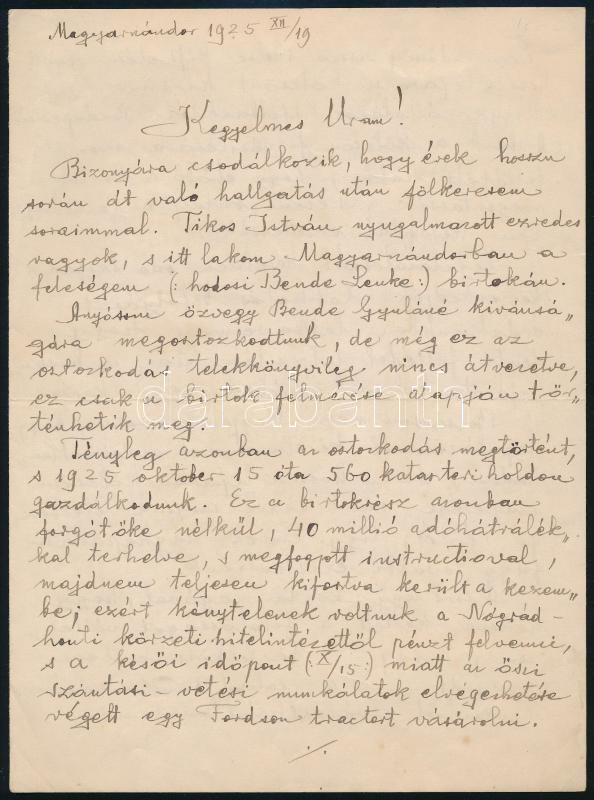 Magyarnándor 1925 XII/19
Kegyelmes Uram!
Bizonyára csodálkozik, hogy évek hosszu
során át való hallgatás után fölkeresem
soraimmal. Tikos István nyugalmazott ezredes
vagyok, s itt lakom Magyarnándorban a
feleségem (: hodosi Bende Lenke :) birtokán.
Anyósom özvegy Bende Gyuláné kivánsá„
gára megosztozkodtunk, de még ez az
osztozkodás telekkönyvileg nincs átvezetve,
ez csak a birtok felmérése alapján tör„
ténhetik meg.
Tényleg azonban az osztozkodás megtörtént,
s 1925 oktober 15 óta 560 kataszteri holdon
gazdálkodunk. Ez a birtokrész azonban
forgótőke nélkül, 40 millió adóhátrálék„
kal terhelve, s megfogyott instructioval,
majdnem teljesen kifosztva került a kezem„
be; ezért kénytelenek voltunk a Nógrád-
honti körzeti hitelintézettől pénzt felvenni,
s a késői időpont (: X/15 :) miatt az őszi
szántási-vetési munkálatok elvégezhetése
végett egy Fordson tractort vásárolni.
./.
darabanth